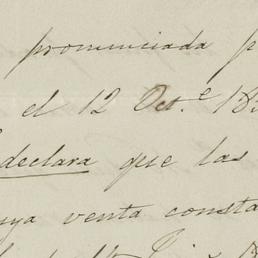 pronunciada p
el 12 Oct.e 18
declara que las
uya venta consta